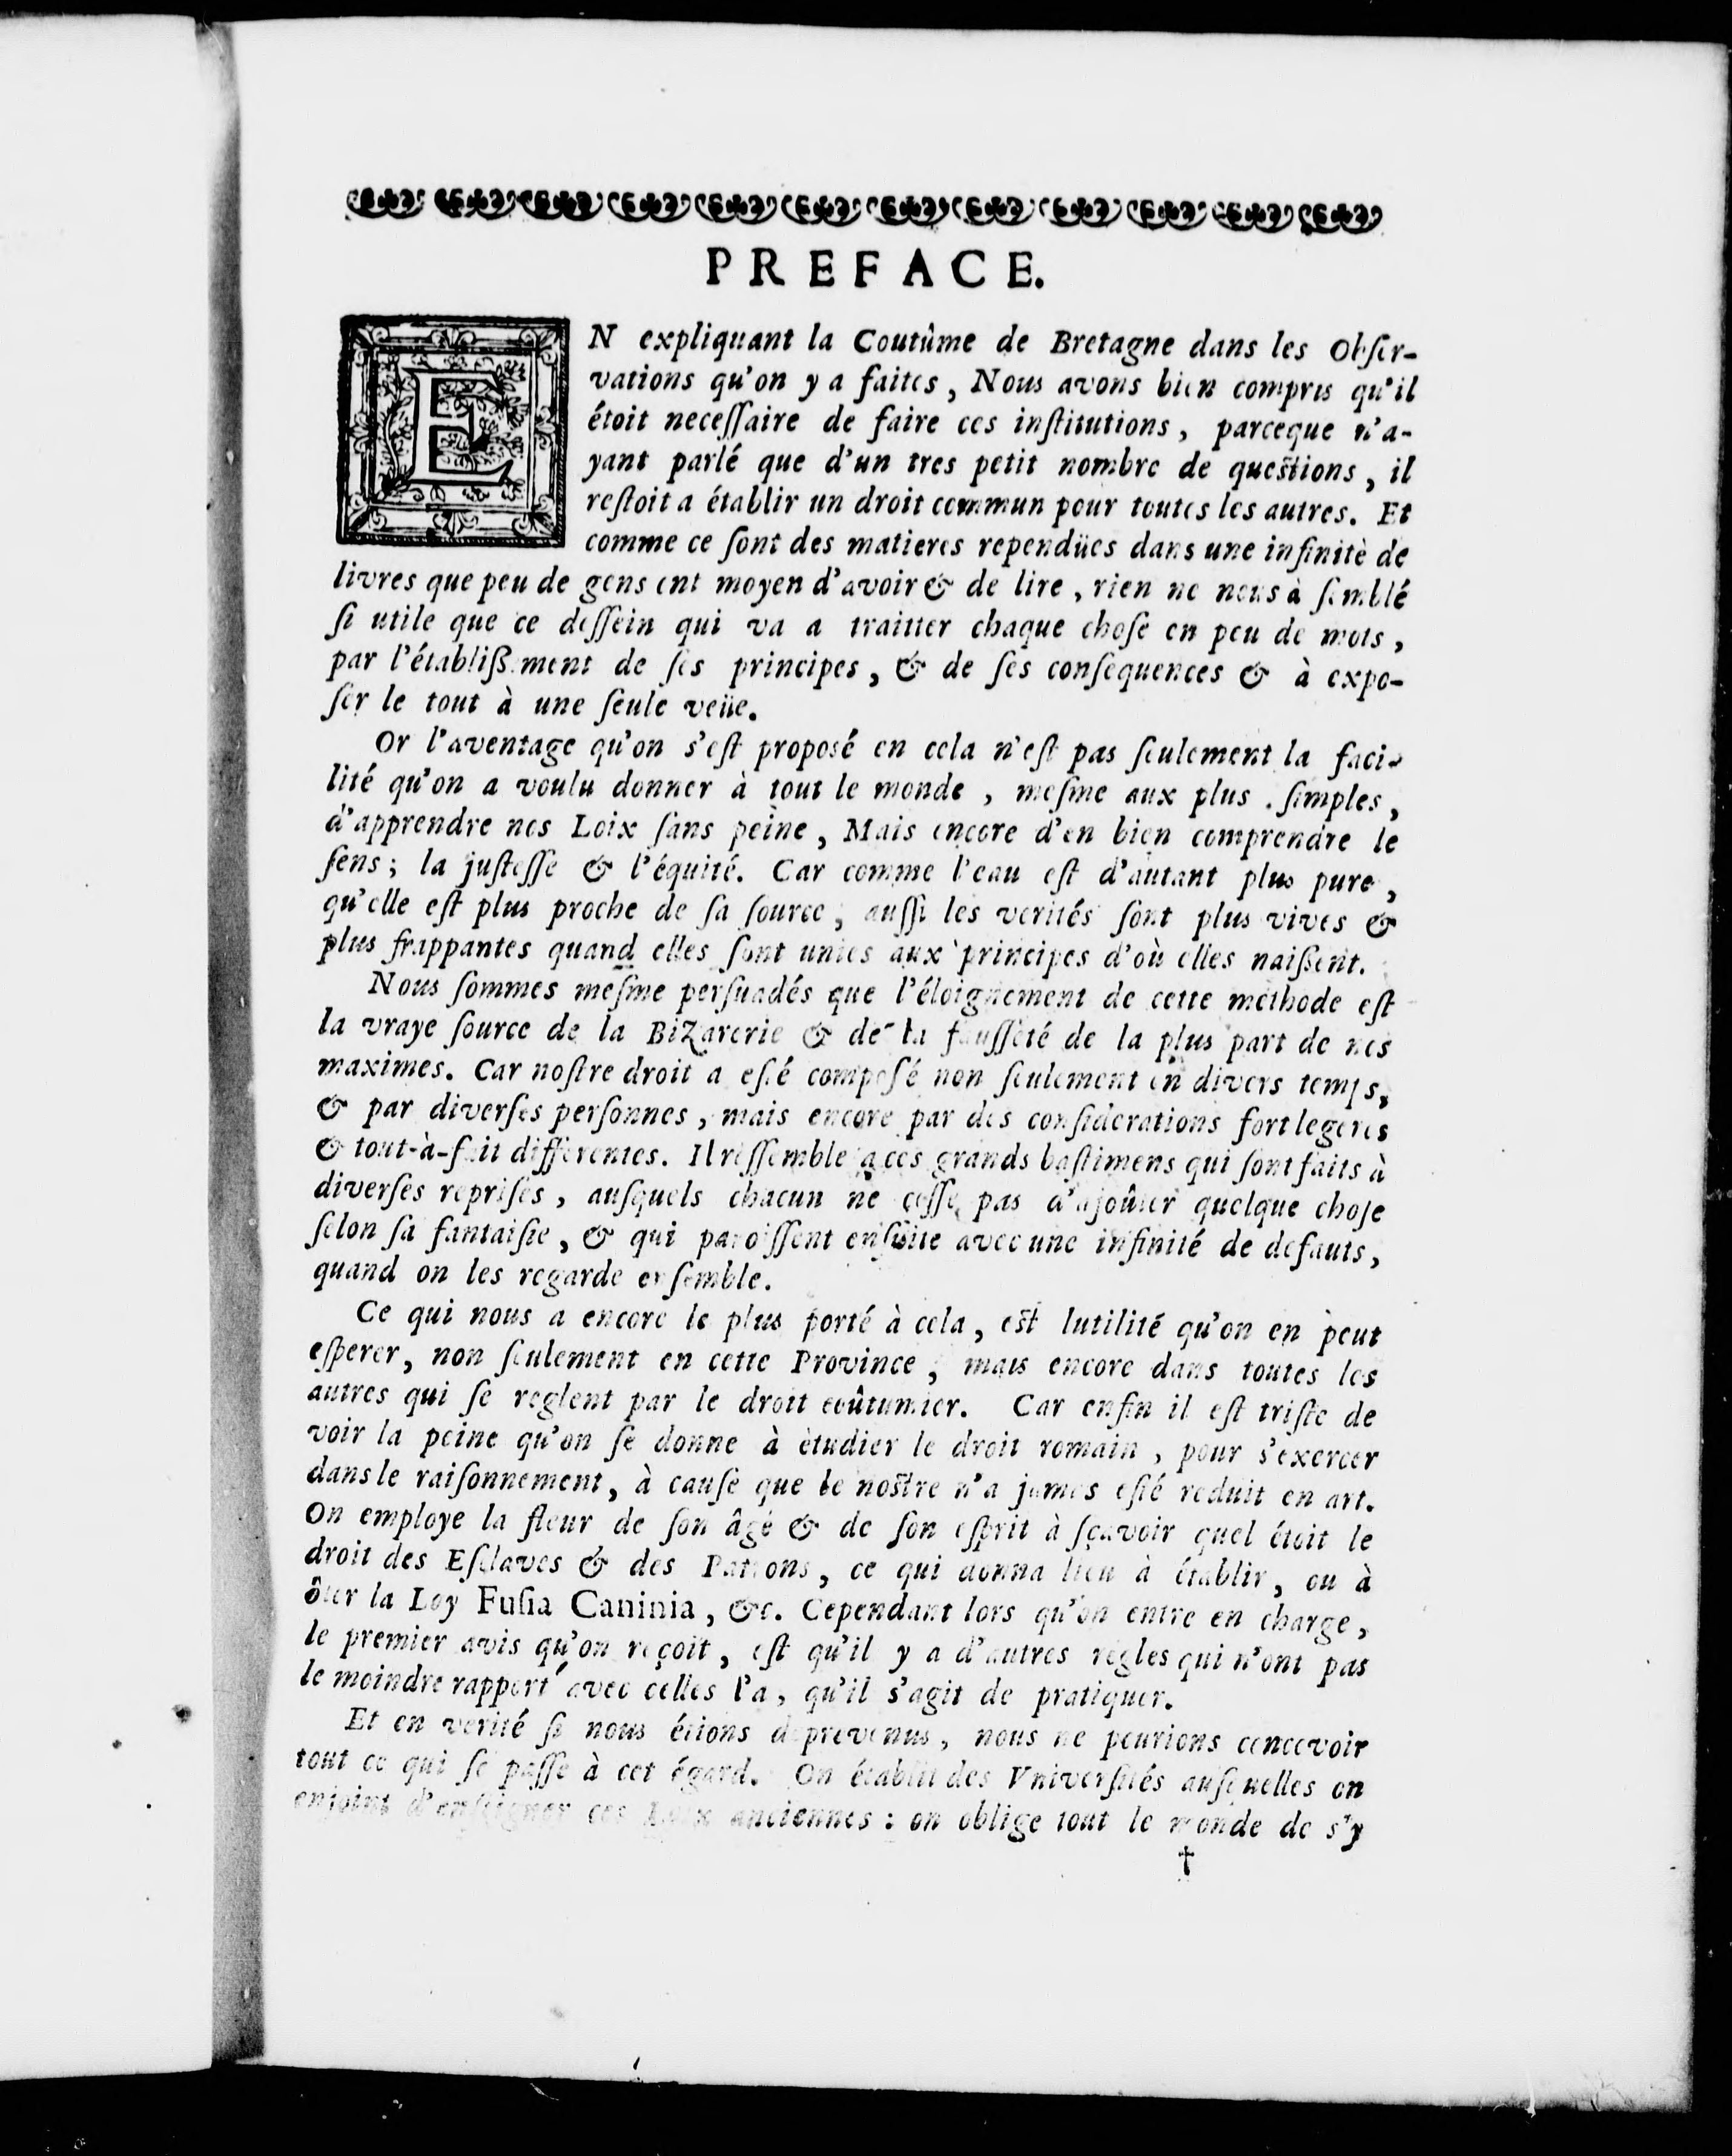 PREFACE.
EN expliquant la Coutûme de Bretagne dans les Obſer-
vations qu'on y a faites, Nous avons bien compris qu'il
étoit neceſſaire de faire ces inſtitutions, parceque n'a-
yant parlé que d'un tres petit nombre de queſtions, il
reſtoit a établir un droit commun pour toutes les autres. Et
comme ce ſont des matieres rependües dans une infinitè de
livres que peu de gens ont moyen d'avoir & de lire, rien ne nous à ſemblé
ſi utile que ce deſſein qui va a traitter chaque choſe en peu de mots,
par l'établißement de ſes principes, & de ſes conſequences & à expo-
ſer le tout à une ſeule veüe.
Or l'aventage qu'on s'eſt proposé en cela n'eſt pas ſeulement la faci-
lité qu'on a voulu donner à tout le monde, meſme aux plus . ſimples,
d'apprendre nos Loix ſans peine, Mais encore d'en bien comprendre le
ſens; la juſteſſe & l'équité. Car comme l'eau eſt d'autant plus pure,
qu'elle eſt plus proche de ſa ſource; auſſi les verités ſont plus vives &
plus frappantes quand elles ſont unies aux principes d'où elles naißent.
Nous ſommes meſme perſuadés que l'éloignement de cette méthode eſt
la vraye ſource de la BiZarerie & de la fauſſeté de la plus part de nos
maximes. Car noſtre droit a eſté compoſé non ſeulement en divers temps,
& par diverſes perſonnes, mais encore par des conſiderations fort legeres
& tout-à-fait differentes. Il reſſemble a ces grands baſtimens qui ſont faits à
diverſes repriſes, auſquels chacun ne ceſſe pas d'ajoûter quelque choſe
ſelon ſa fantaiſie, & qui paroiſſent enſuite avec une infinité de defauts,
quand on les regarde enſemble.
Ce qui nous a encore le plus porté à cela, eſt lutilité qu'on en peut
eſperer, non ſeulement en cette Province, mais encore dans toutes les
autres qui ſe reglent par le droit coûtumier. Car enfin il eſt triſte de
voir la peine qu'on ſe donne à ètudier le droit romain, pour s'exercer
dans le raiſonnement, à cauſe que le noſtre n'a jamais eſté reduit en art.
On employe la fleur de ſon âge & de ſon eſprit à ſçavoir quel étoit le
droit des Eſclaves & des Patrons, ce qui donna lieu à établir, ou à
ôter la Loy Fuſia Caninia, &c. Cependant lors qu'on entre en charge,
le premier avis qu'on reçoit, eſt qu'il y a d'autres regles qui n'ont pas
le moindre rapport avec celles l'a, qu'il s'agit de pratiquer.
Et en verité ſi nous étions déprevenus, nous ne pourions concevoir
tout ce qui ſe paſſe à cet égard. On établit des Vniverſités auſquelles on
enjoint d'enſeigner ces Loix anciennes: on oblige tout le monde de s'y
†